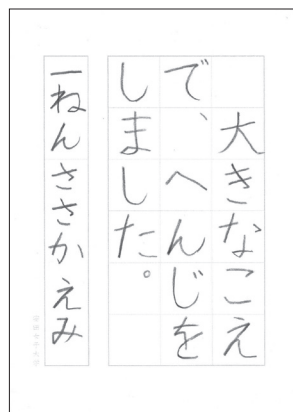 大きなこえ
で、へんじを
しました。
一ねんささかえみ